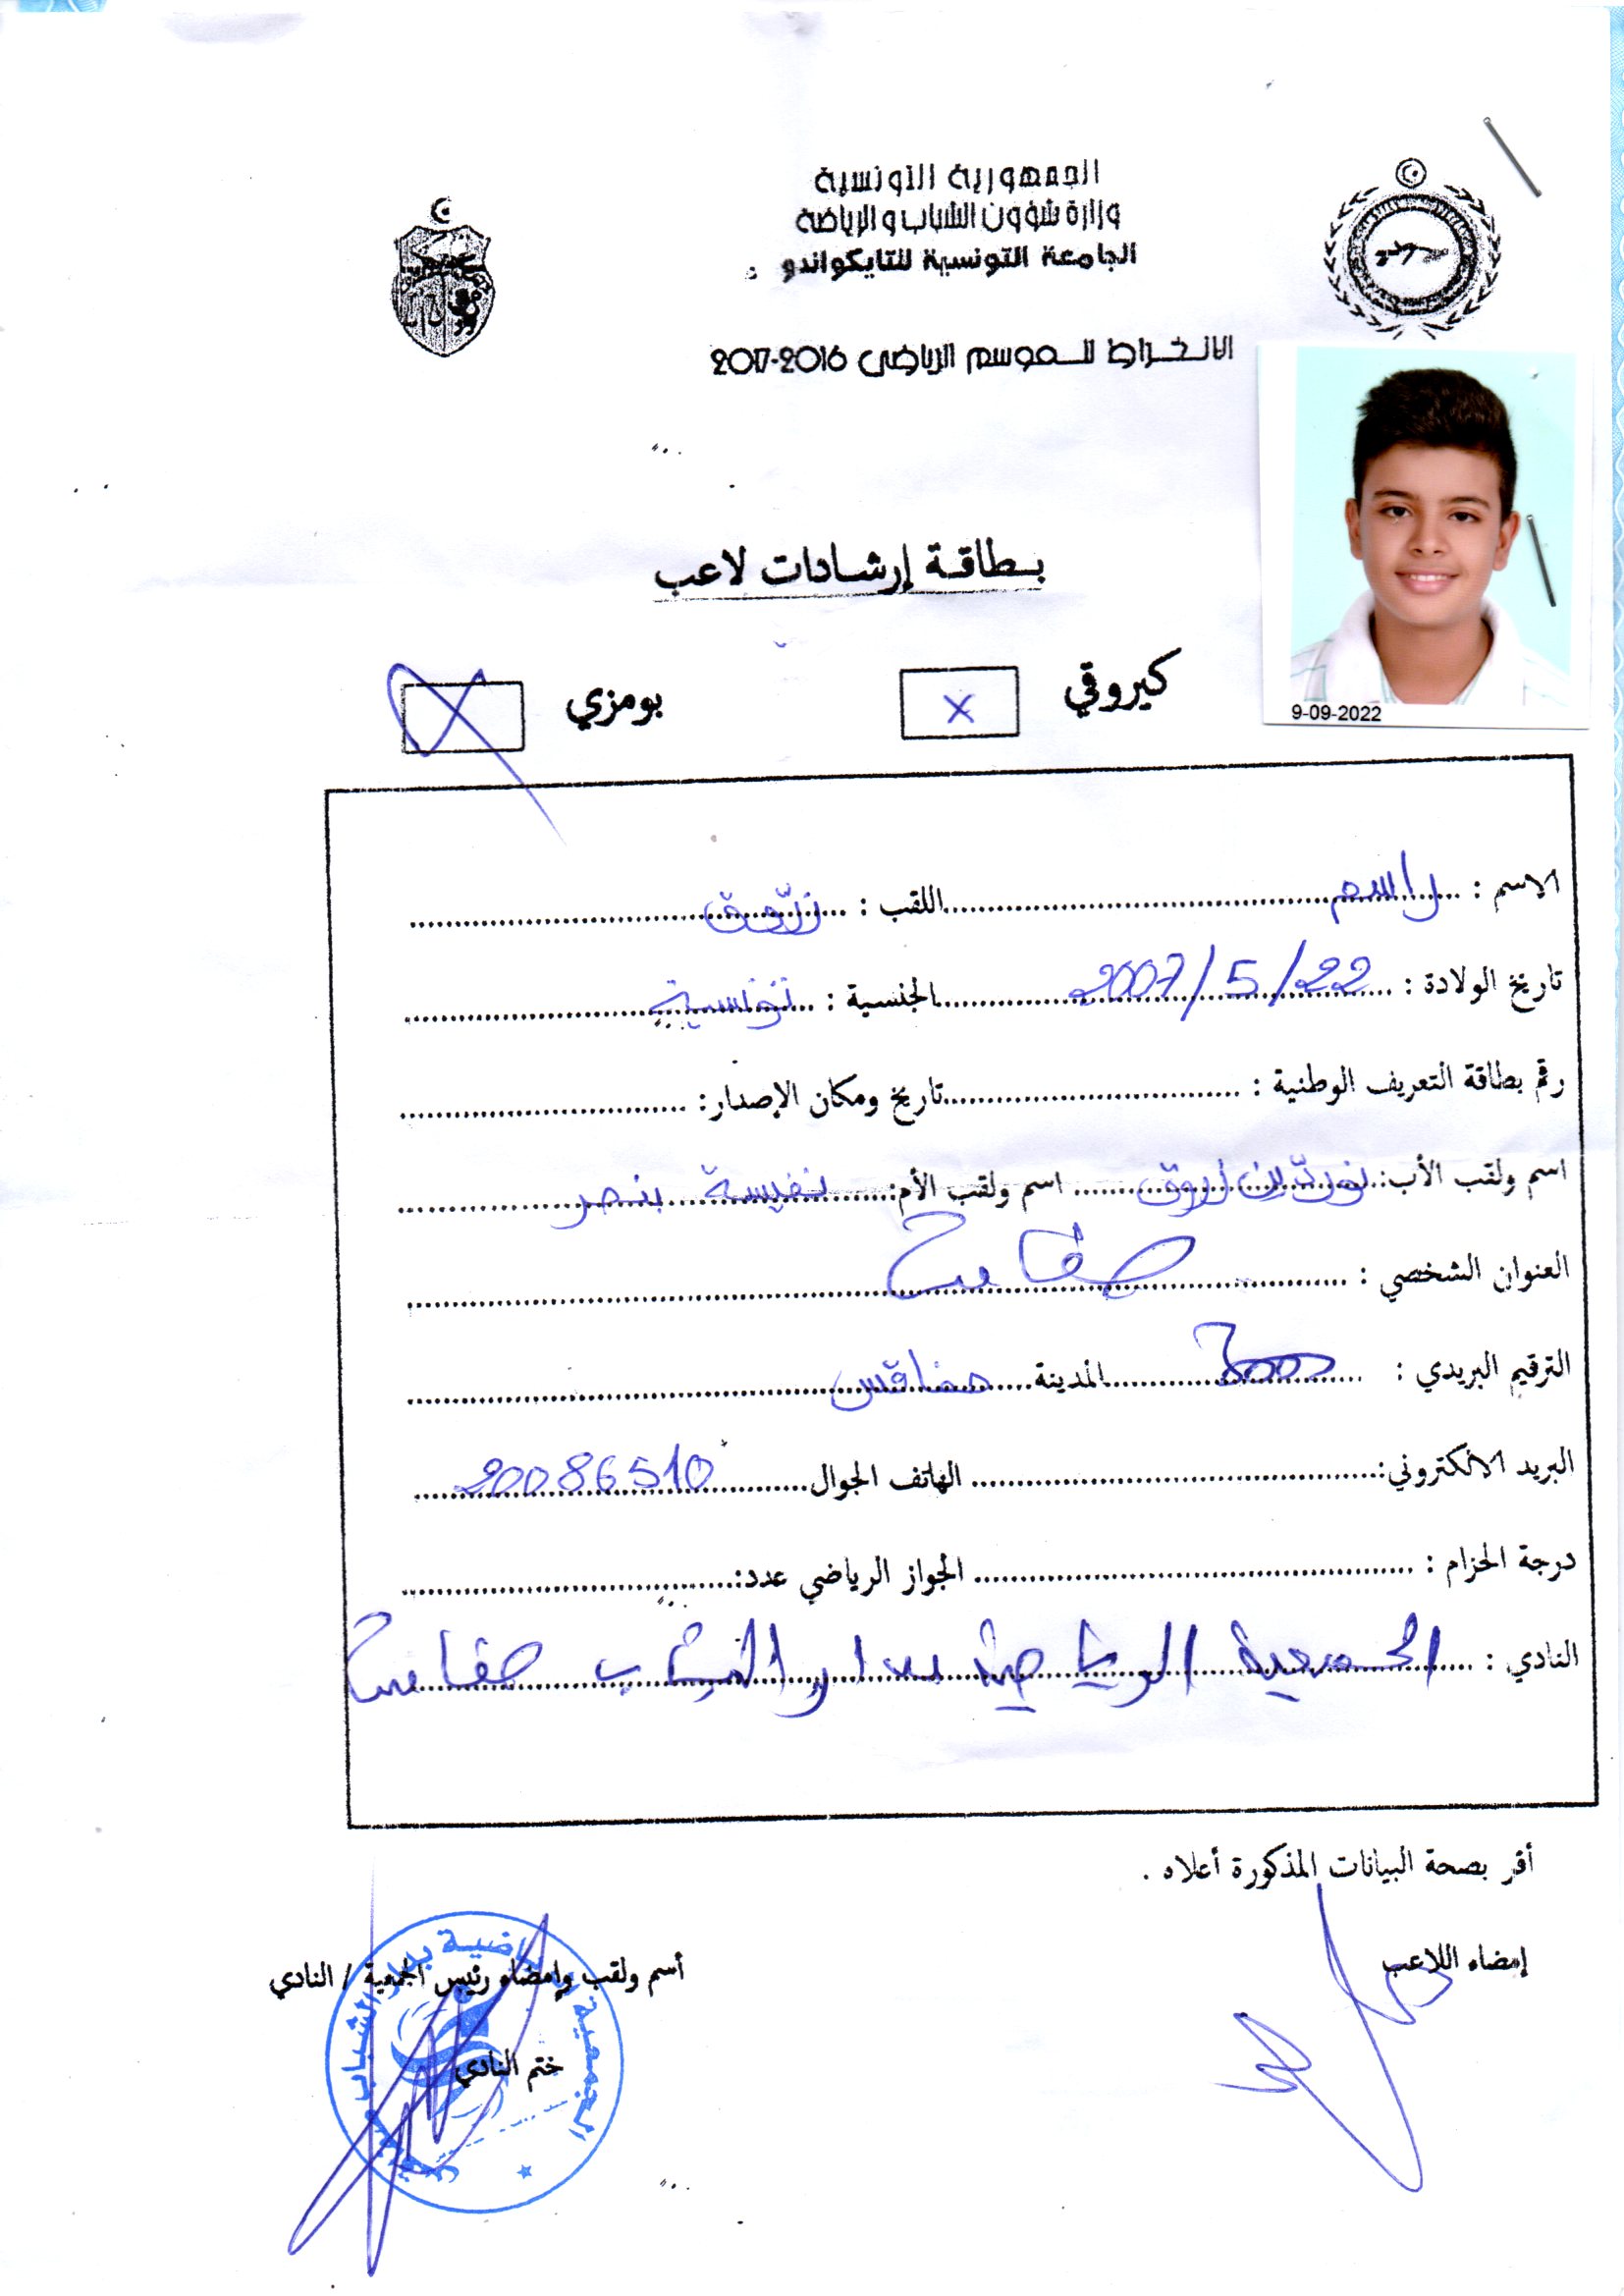 الجمهورية التونسية
وزارة شؤون الشباب والرياضة
الجامعة التونسية للتايكواندو
الانخراط للموسم الرياضي 2016-2017
9-09-2022
بطاقة إرشادات لاعب
كيروقي x بومزي
الاسم : راسم اللقب : زرّوق
تاريخ الولادة : 22/5/2007 الجنسية : تونسية
رقم بطاقة التعريف الوطنية : تاريخ ومكان الإصدار:
اسم ولقب الأب: نور الدّين زروق اسم ولقب الأم: نفيسة بنصر
العنوان الشخصي : صفاقس
الترقيم البريدي : 3000 المدينة صفاقس
البريد الالكتروني: الهاتف الجوال 20086510
درجة الحزام : الجواز الرياضي عدد:
النادي : الجمعية الرياضية بدار الشباب صفاقس
أقر بصحة البيانات المذكورة أعلاه .
إمضاء اللاعب
أسم ولقب وإمضاء رئيس الجمعية / النادي
ختم النادي
الجمعية الرياضية بدار الشباب